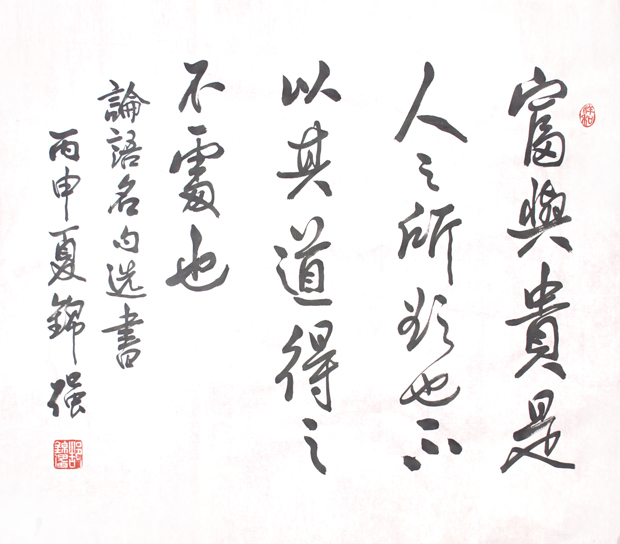 富與貴是
人之所欲也不
以其道得之
不處也
論語名句选書
丙申夏錦强